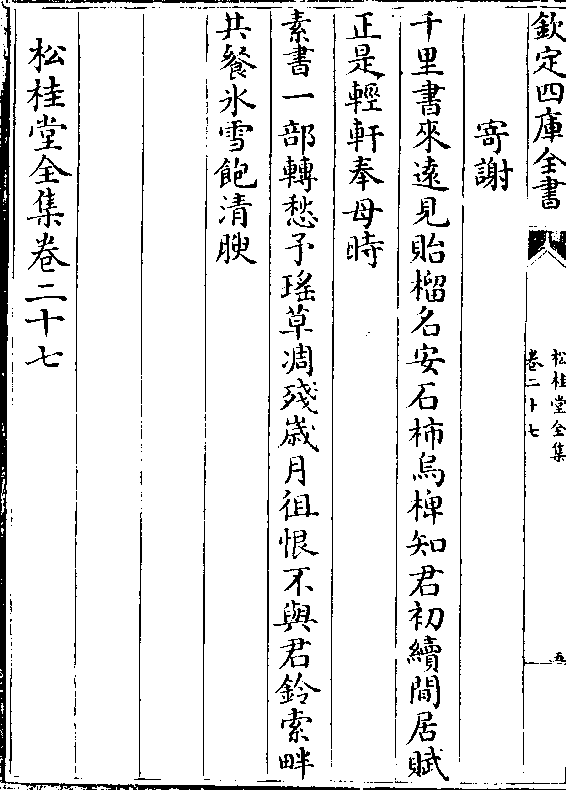 欽定四庫全書
松桂堂全集
卷二十七
五
寄謝
千里書來遠見貽榴名安石柿烏椑知君初續閒居賦
正是輕軒奉母時
素書一部轉愁予瑤草凋殘歲月徂恨不與君鈴索畔
共餐氷雪飽清腴
松桂堂全集卷二十七